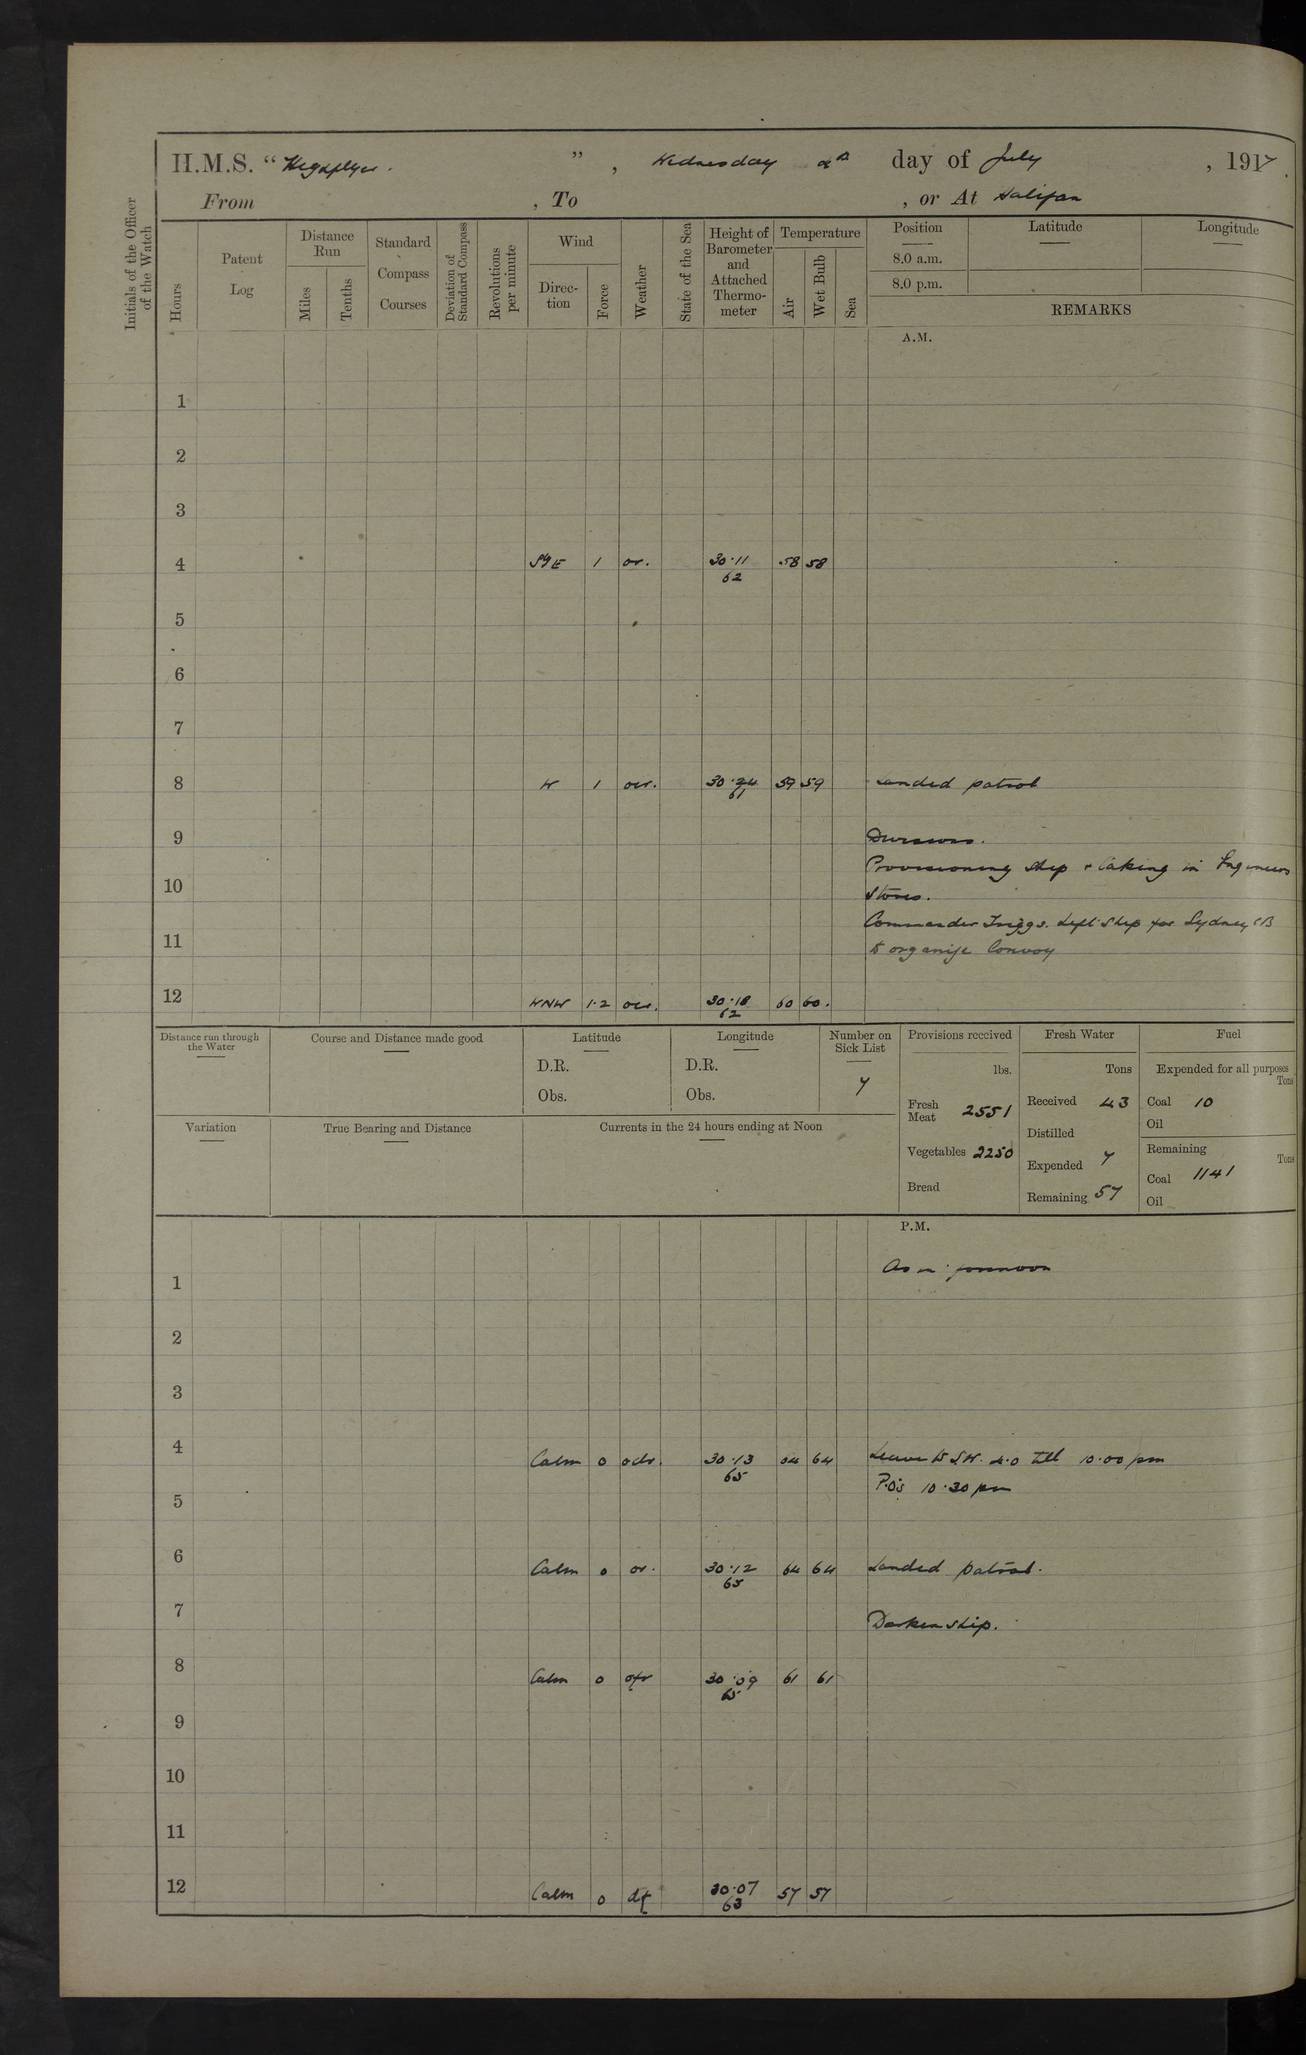 H.M.S. “ Highflyer. ” , Wednesday 4th day of July , 1917.
From , To , or At Halifax
Initials of the Officer of the Watch
Hours
Patent Log
Distance Run
Miles
Tenths
Standard Compass Courses
Deviation of Standard Compass
Revolutions per minute
Wind
Direction
Force
Weather
State of the Sea
Height of Barometer and Attached Thermometer
Temperature
Air
Wet Bulb
Sea
Position Latitude Longitude
8.0 a.m.
8.0 p.m.
REMARKS
A.M.
1
2
3
4 SyE 1 or. 30·11 58 58
62
5
6
7
8 W 1 ocr. 30·24 59 59 Landed patrol
61
9 Divisions.
Provisioning Ship & taking in Engineers
10 Stores.
Commander Triggs. Left Ship for Sydney CB
11 to organise Convoy
12 WNW 1·2 ocr. 30·18 60 60.
62
Distance run through the Water
Course and Distance made good
Latitude
D.R.
Obs.
Longitude
D.R.
Obs.
Number on Sick List
7
Provisions received
lbs.
Fresh Meat 2551
Vegetables 2250
Bread
Fresh Water
Tons
Received 43
Distilled
Expended 7
Remaining 57
Fuel
Expended for all purposes
Tons
Coal 10
Oil
Remaining
Tons
Coal 1141
Oil
Variation
True Bearing and Distance
Currents in the 24 hours ending at Noon
P.M.
1 As in forenoon
2
3
4 Calm 0 odr. 30·13 64 64 Leave to SW. 4·0 till 10·00 pm
65
5 P.O's 10·30 pm
6 Calm 0 or. 30·12 64 64 Landed patrol.
65
7 Darken ship.
8 Calm 0 ofr 30·09 61 61
65
9
10
11
12 Calm 0 df 30·07 57 57
63